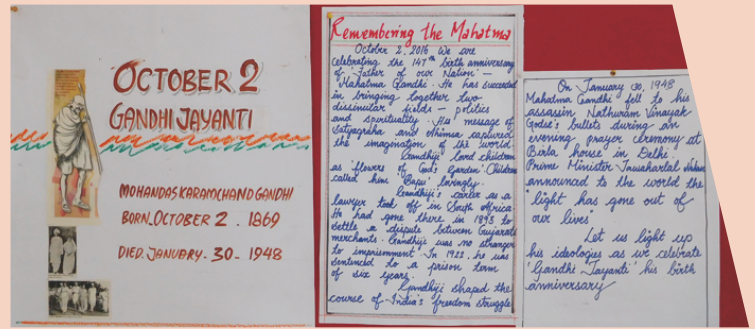 OCTOBER 2
GANDHI JAYANTI
MOHANDAS KARAMCHAND GANDHI
BORN. OCTOBER 2. 1869
DIED. JANUARY. 30- 1948
Remembering the Mahatma
October 2, 2016 We are
celebrating the 147th birth anniversary
of 'Father of our Nation' –
Mahatma Gandhi. He has succeeded
in bringing together two
dissimilar fields – politics
and spirituality. His message of
Satyagraha and Ahimsa captured
the imagination of the world.
Gandhiji lord children
as 'flowers of God's Garden'. Children
called him 'Bapu' lovingly.
Gandhiji's career as a
lawyer took off in South Africa.
He had gone there in 1893 to
settle a dispute between Gujarati
merchants. Gandhiji was no stranger
to imprisonment. In 1922, he was
sentenced to a prison term
of six years.
Gandhiji shaped the
course of India's freedom struggle
On January 30, 1948
Mahatma Gandhi fell to his
assassin Nathuram Vinayak
Godse's bullets during an
evening prayer ceremony at
Birla house in Delhi.
Prime Minister Jawaharlal Nehru
announced to the world the
"light has gone out of
our lives"
Let us light up
his ideologies as we celebrate
'Gandhi Jayanti' his birth
anniversary